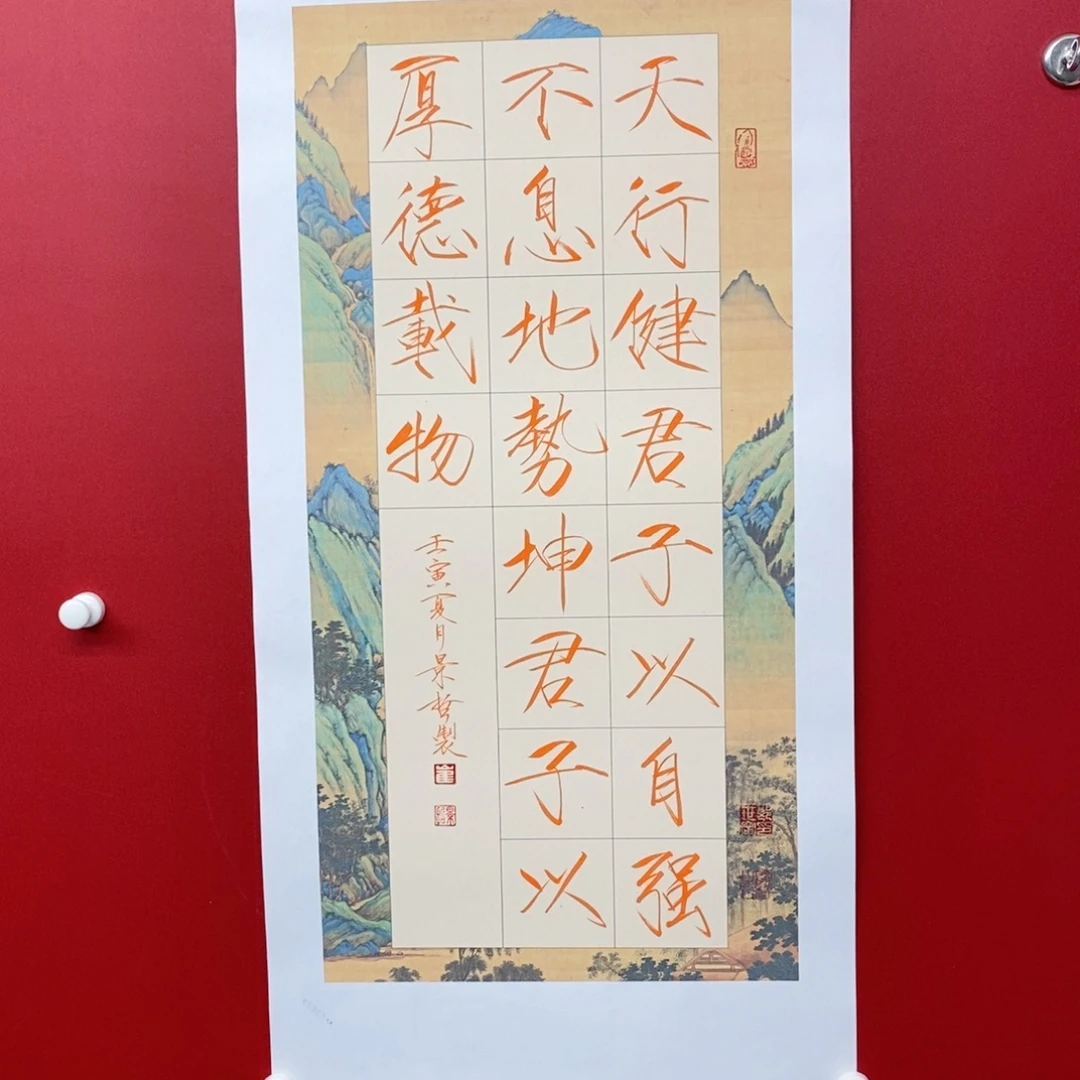 天行健君子以自强
不息地勢坤君子以
厚德載物
壬寅夏月景哲製